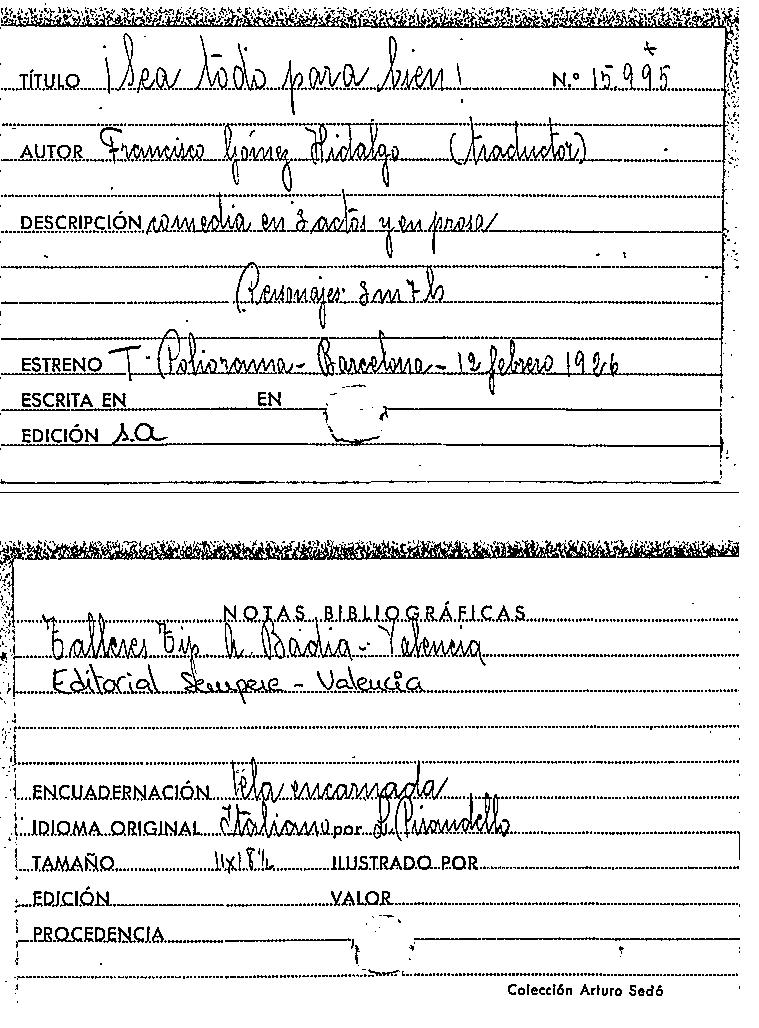 TÍTULO ¡Sea todo para bien! N.º 15.995
AUTOR Francisco Gómez Hidalgo (traductor)
DESCRIPCIÓN comedia en 3 actos y en prosa
Personajes: 3 m 7 h
ESTRENO T. Poliorama - Barcelona - 12 febrero 1926
ESCRITA EN EN
EDICIÓN s.a
NOTAS BIBLIOGRÁFICAS
Talleres Tip. Badia - Valencia
Editorial Sempere - Valencia
ENCUADERNACIÓN tela encarnada
IDIOMA ORIGINAL Italiano por L. Pirandello
TAMAÑO 11x18½ ILUSTRADO POR
EDICIÓN VALOR
PROCEDENCIA
Colección Arturo Sedó